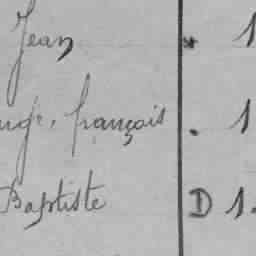 Jean * 1
françois . 1
Baptiste D 1.